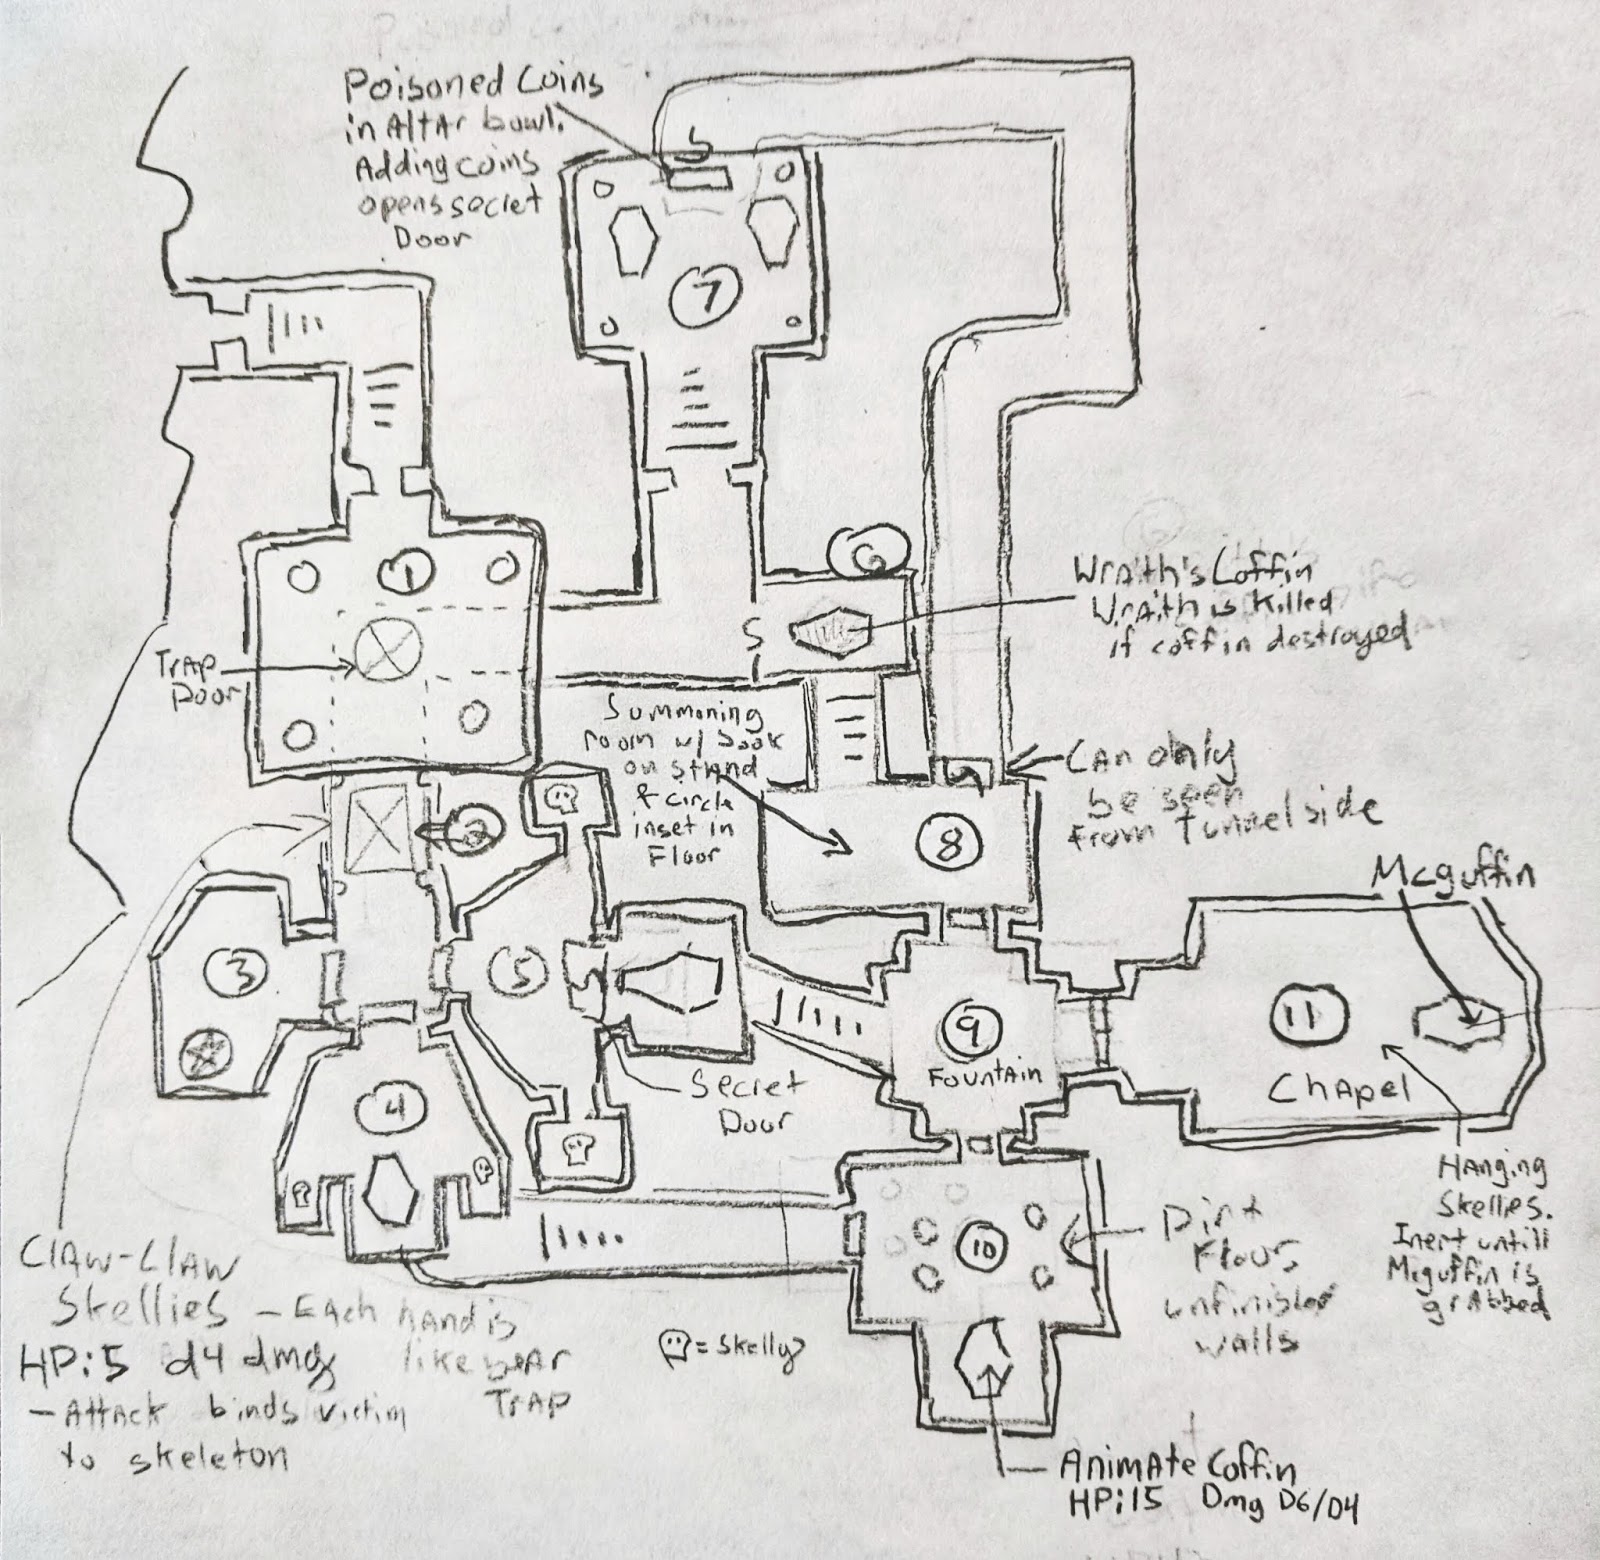 Poisoned Coins
in Altar bowl.
Adding coins
opens secret
Door
S
7
1
Trap
Door
6
S
Wraith's Coffin
Wraith is killed
if coffin destroyed
Summoning
room w/ book
on stand
& circle
inset in
Floor
S
Can only
be seen
from tunnel side
2
8
Mcguffin
3
5
S
9
Fountain
11
Chapel
Secret
Door
4
Hanging
Skellies.
Inert untill
Mcguffin is
grabbed
10
Dirt
Flour,
unfinished
walls
Claw-Claw
Skellies - Each hand is
HP:5 d4 dmg like bear
- Attack binds victim Trap
to skeleton
= Skelly
Animate Coffin
HP:15 Dmg D6/D4